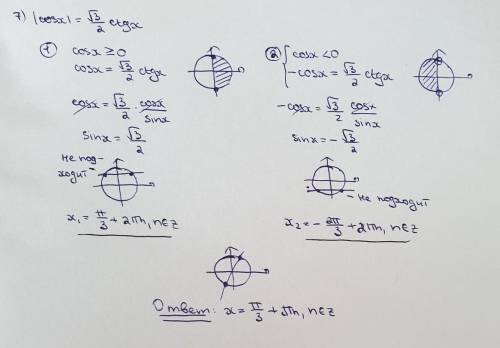 7) |cosx| = √3/2 ctgx
① cosx ≥ 0
cosx = √3/2 ctgx
cosx = √3/2 · cosx/sinx
sinx = √3/2
не под-
ходит
x₁ = π/3 + 2πn, n∈z
② { cosx < 0
-cosx = √3/2 ctgx
-cosx = √3/2 cosx/sinx
sinx = -√3/2
не подходит
x₂ = -2π/3 + 2πn, n∈z
Ответ: x = π/3 + πn, n∈z